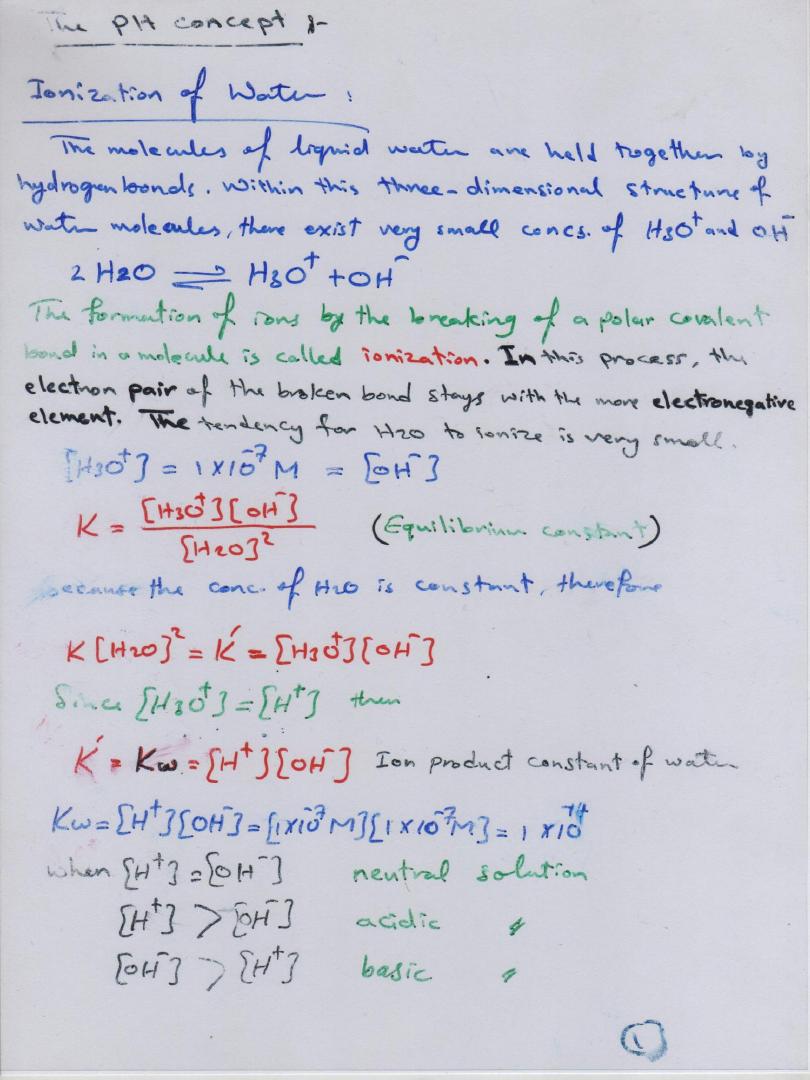 The PH concept :-
Ionization of Water :
The molecules of liquid water are held together by
hydrogen bonds. Within this three-dimensional structure of
water molecules, there exist very small concs. of H3O⁺ and OH⁻
2 H2O ⇌ H3O⁺ + OH⁻
The formation of ions by the breaking of a polar covalent
bond in a molecule is called ionization. In this process, the
electron pair of the broken bond stays with the more electronegative
element. The tendency for H2O to ionize is very small.
[H3O⁺] = 1 x 10⁻⁷ M = [OH⁻]
K = [H3O⁺][OH⁻] / [H2O]² (Equilibrium constant)
because the conc. of H2O is constant, therefore
K [H2O]² = K′ = [H3O⁺][OH⁻]
Since [H3O⁺] = [H⁺] then
K′ = Kw = [H⁺][OH⁻] Ion product constant of water
Kw = [H⁺][OH⁻] = [1x10⁻⁷ M][1 x 10⁻⁷ M] = 1 x 10⁻¹⁴
when [H⁺] = [OH⁻] neutral solution
[H⁺] > [OH⁻] acidic 〃
[OH⁻] > [H⁺] basic 〃
1